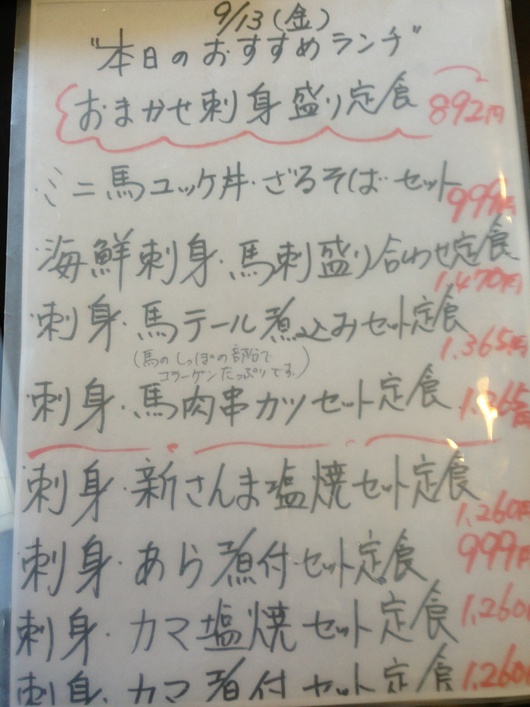 9/13(金)
"本日のおすすめランチ"
おまかせ刺身盛り定食 892円
ミニ馬ユッケ丼・ざるそば セット 999円
海鮮刺身・馬刺盛り合わせ定食 1,470円
刺身・馬テール煮込みセット定食 1,365円
(馬のしっぽの部分で
コラーゲンたっぷりです。)
刺身・馬肉串カツセット定食
刺身・新さんま塩焼セット定食 1,260円
刺身・あら煮付・セット定食 999円
刺身・カマ塩焼セット定食 1,260
刺身・カマ煮付セット定食 1,260